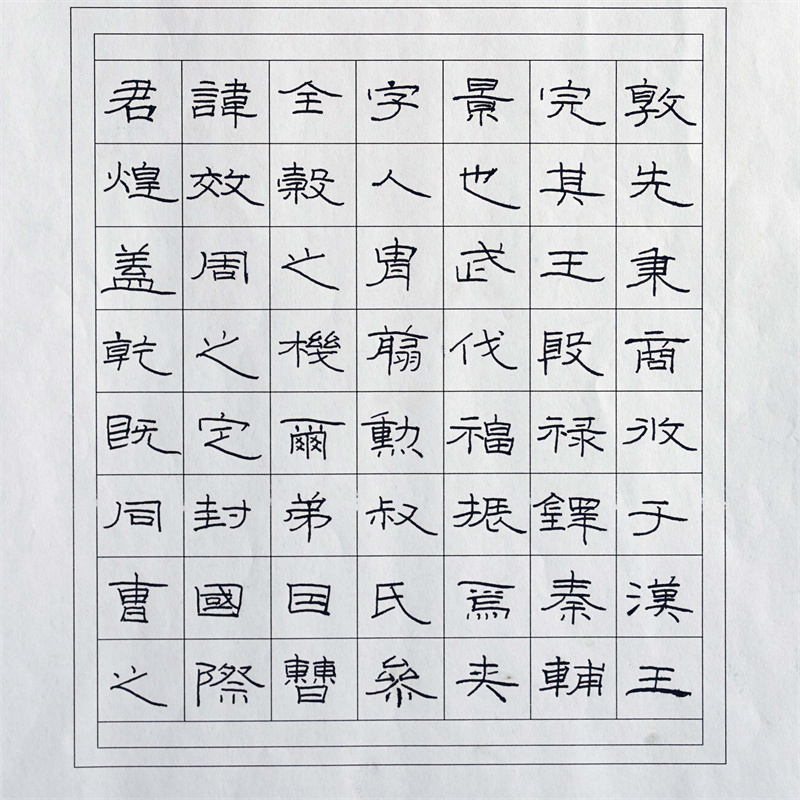 君諱全字景完敦
煌效穀人也其先
蓋周之胄武王秉
乾之機翦伐殷商
既定爾勲福禄攸
同封弟叔振鐸于
曹國因氏焉秦漢
之際曹參夾輔王